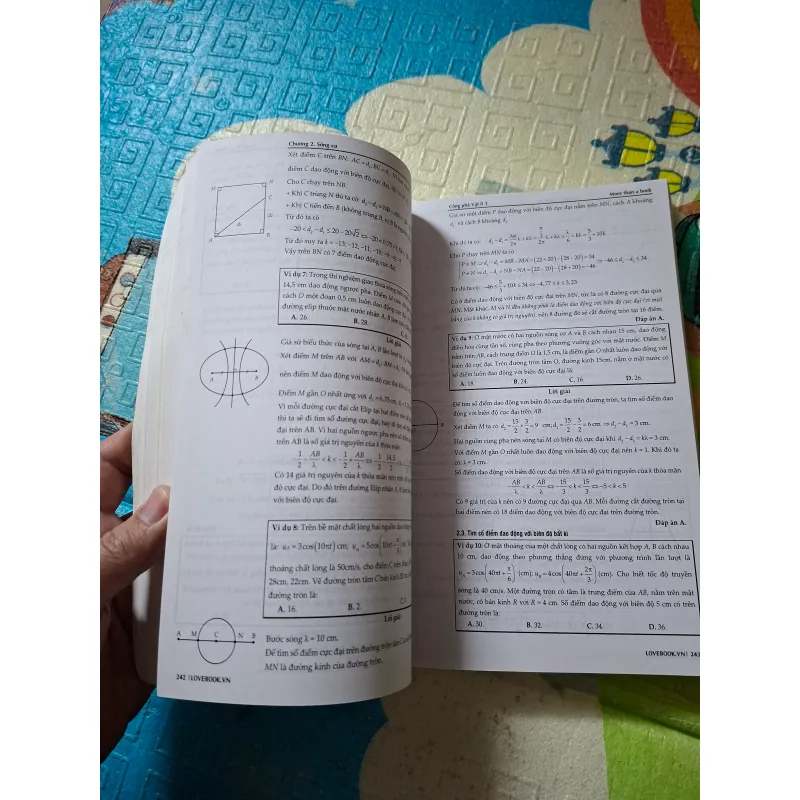 Chương 2. Sóng cơ
Xét điểm C trên BN: AC = d₁; BC = d₂
điểm C dao động với biên độ cực đại,
Cho C chạy trên NB.
+ Khi C trùng N thì ta có:
+ Khi C tiến đến B (không trùng B,
Từ đó ta có
Từ đó suy ra k = -13; -12; -11; -10;
Vậy trên BN có 7 điểm dao động cực đại.
M
N
C
A
B
Ví dụ 7: Trong thí nghiệm giao thoa sóng
14,5 cm dao động ngược pha. Điểm M
cách O một đoạn 0,5 cm luôn dao động
đường elip thuộc mặt nước nhận A, B làm
A. 26.
B. 28.
Lời giải
Giả sử biểu thức của sóng tại A, B
Xét điểm M trên AB với AM = d₁; BM = d₂
nên điểm M dao động với biên độ cực đại khi
Điểm M gần O nhất ứng với d₁ = 6,75cm,
Vì mỗi đường cực đại cắt Elip tại hai điểm nên
thì ta sẽ đi tìm số đường cực đại, hay đi tìm số
đại trên AB. Vì hai nguồn ngược pha nên số điểm
trên AB là số giá trị nguyên của k thỏa mãn
Có 14 giá trị nguyên của k thỏa mãn
độ cực đại. Do đó trên đường Elip nhận A,
với biên độ cực đại.
Ví dụ 8: Trên bề mặt chất lỏng hai nguồn dao động
là: u_A = 3cos(10πt) cm; u_B = 5cos(10πt + π/3)
thoáng chất lỏng là 50cm/s, cho điểm C trên
28cm, 22cm. Vẽ đường tròn tâm C bán kính 20
đường tròn là:
A. 16.
B. 2.
Lời giải
A M C N B
Bước sóng λ = 10 cm.
Để tìm số điểm cực đại trên đường tròn tâm C
MN là đường kính của đường tròn.
242 | LOVEBOOK.VN
Công phá Vật lí 3
More than a book
Giả sử một điểm P dao động với biên độ cực đại nằm trên MN, cách A khoảng
d₁ và cách B khoảng d₂
Khi đó ta có:
Cho P chạy trên MN ta có
P ≡ M ⇒ d₂ - d₁ = MB - MA = (22+20) - (28-20) = 34
P ≡ N ⇒ d₂ - d₁ = NB - NA = (22-20) - (28+20) = -46
⇒ -46 ≤ d₂ - d₁ ≤ 34
Từ đó ta có: -46 ≤ 5/3 + 10k ≤ 34 ⇔ -4,77 ≤ k ≤ 3,23
Có 8 điểm dao động với biên độ cực đại trên MN, tức là có 8 đường cực đại qua
MN. Mặt khác M và N đều không phải là điểm dao động với biên độ cực đại (vì dấu
bằng của k không có giá trị nguyên), nên 8 đường đó sẽ cắt đường tròn tại 16 điểm.
Đáp án A.
Ví dụ 9: Ở mặt nước có hai nguồn sóng cơ A và B cách nhau 15 cm, dao động
điều hòa cùng tần số, cùng pha theo phương vuông góc với mặt nước. Điểm M
nằm trên AB, cách trung điểm O là 1,5 cm, là điểm gần O nhất luôn dao động với
biên độ cực đại. Trên đường tròn tâm O, đường kính 15cm, nằm ở mặt nước có
số điểm luôn dao động với biên độ cực đại là:
A. 18.
B. 24.
C. 16
D. 26.
Lời giải
Để tìm số điểm dao động với biên độ cực đại trên đường tròn, ta tìm số điểm dao
động với biên độ cực đại trên AB.
Xét điểm M ta có d₁ = 15/2 + 3/2 = 9 cm; d₂ = 15/2 - 3/2 = 6 cm ⇒ d₁ - d₂ = 3 cm.
Hai nguồn cùng pha nên sóng tại M có biên độ cực đại khi d₁ - d₂ = kλ = 3 cm.
Với điểm M gần O nhất luôn dao động với biên độ cực đại nên k = 1. Khi đó ta
có: λ = 3 cm.
Số điểm dao động với biên độ cực đại trên AB là số giá trị nguyên của k thỏa mãn
-AB/λ < k < AB/λ ⇔ -15/3 < k < 15/3 ⇔ -5 < k < 5
Có 9 giá trị của k nên có 9 đường cực đại qua AB. Mỗi đường cắt đường tròn tại
hai điểm nên có 18 điểm dao động với biên độ cực đại trên đường tròn.
Đáp án A.
2.3. Tìm số điểm dao động với biên độ bất kì
Ví dụ 10: Ở mặt thoáng của một chất lỏng có hai nguồn kết hợp A, B cách nhau
10 cm, dao động theo phương thẳng đứng với phương trình lần lượt là
u_A = 3cos(40πt + π/6) (cm); u_B = 4cos(40πt + 2π/3) (cm). Cho biết tốc độ truyền
sóng là 40 cm/s. Một đường tròn có tâm là trung điểm của AB, nằm trên mặt
nước, có bán kính R với R = 4 cm. Số điểm dao động với biên độ 5 cm có trên
đường tròn là:
A. 30.
B. 32.
C. 34.
D. 36.
LOVEBOOK.VN | 243